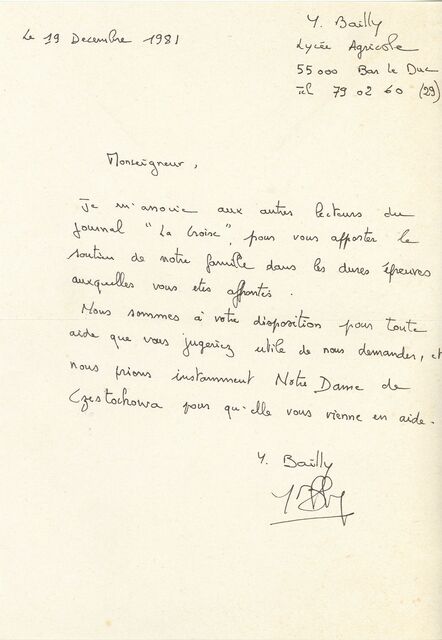 Le 19 Decembre 1981
Y. Bailly
Lycée Agricole
55000 Bar le Duc
Tel 79 02 60 (29)
Monseigneur,
Je m'associe aux autres lecteurs du
journal "La Croix", pour vous apporter le
soutien de notre famille dans les dures épreuves
auxquelles vous etes affrontés.
Nous sommes à votre disposition pour toute
aide que vous jugeriez utile de nous demander, et
nous prions instamment Notre Dame de
Częstochowa pour qu'elle vous vienne en aide.
Y. Bailly